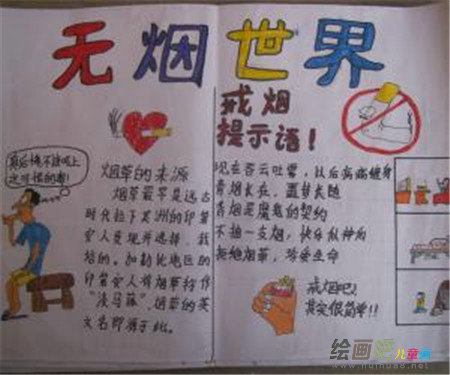 无烟世界
戒烟
提示语!
真后悔不该吸上
这可恨的烟!
烟草的来源
烟草最早是远古
时代拉丁美洲的印第
安人发现并选择、栽
培的。加勒比地区的
印第安人将烟草称作
烟草的英
文名即源于此。
现在吞云吐雾,以后病病缠身
青烟长在,噩梦长随
青烟是魔鬼的契约
不抽一支烟,快乐似神仙
拒绝烟草,珍爱生命
戒烟吧!
其实很简单!!
绘画吧儿童画
www.huihua8.net